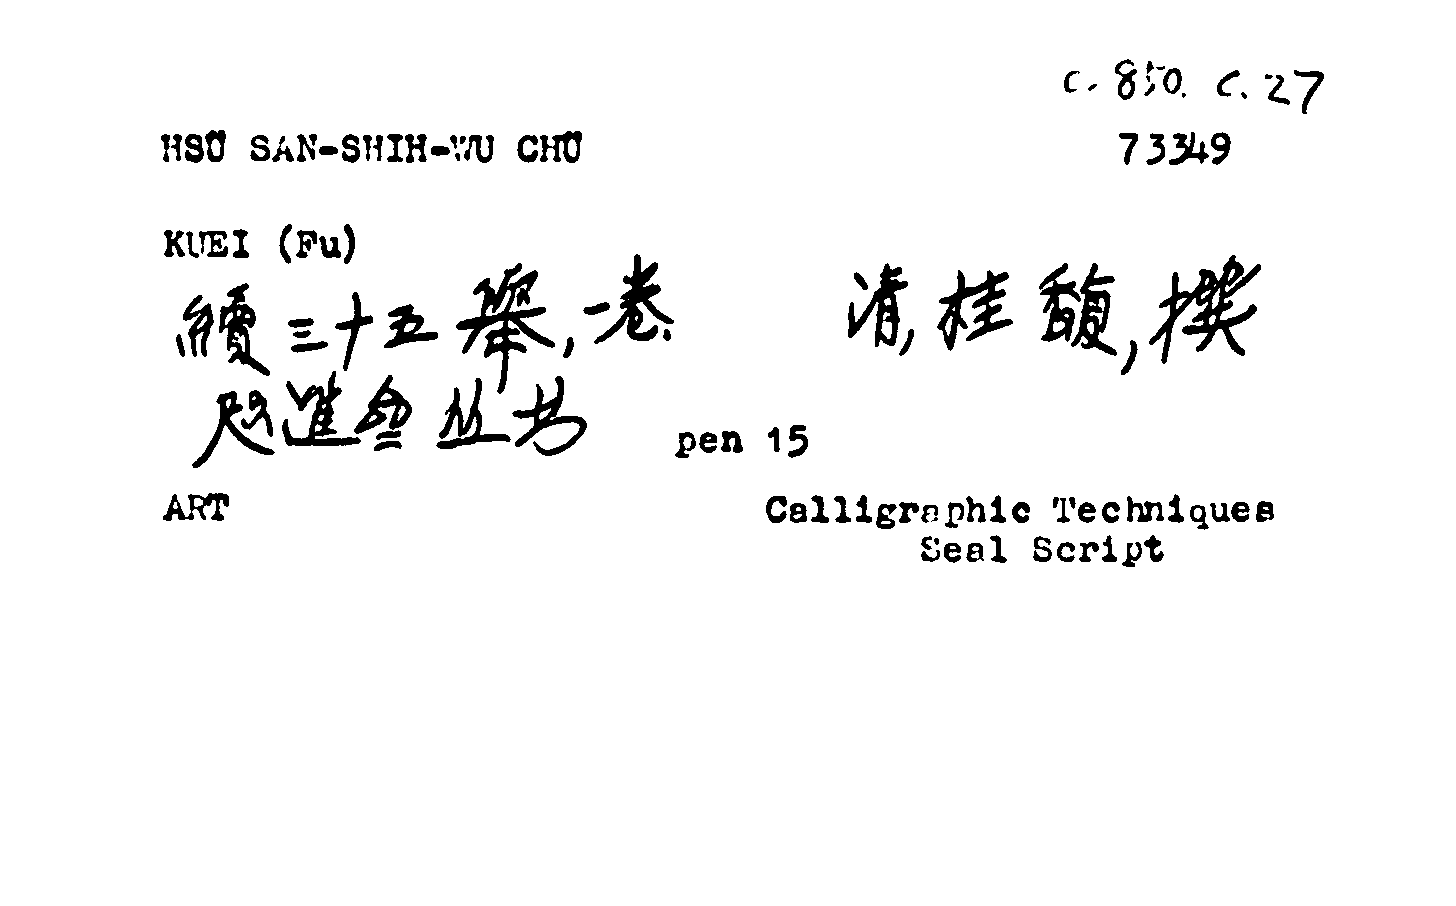 C. 850. C. 27
HSÜ SAN-SHIH-WU CHÜ 73349
KUEI (Fu)
續三十五舉,一卷 清,桂馥,撰
咫進叁丛书 pen 15
ART Calligraphic Techniques
Seal Script